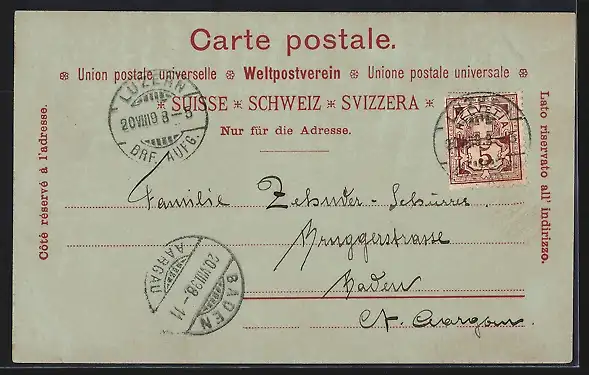 Carte postale.
Union postale universelle ❊ Weltpostverein ❊ Unione postale universale
SUISSE * SCHWEIZ * SVIZZERA
Nur für die Adresse.
Côté réservé à l'adresse.
Lato riservato all' indirizzo.
LUZERN
20VIII98–5
BRF. AUFG.
Familie Zehnder-Schürrer
Bruggerstrasse
Baden
Ct. Aargau
BADEN
20.VIII.98.–11
AARGAU